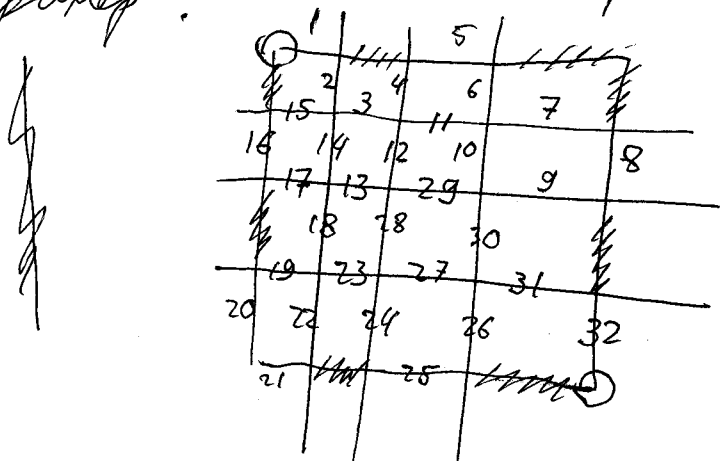 1 5
2 4 6
15 3 11 7
16 14 12 10 8
17 13 29 9
18 28 30
19 23 27 31
20 22 24 26 32
21 25